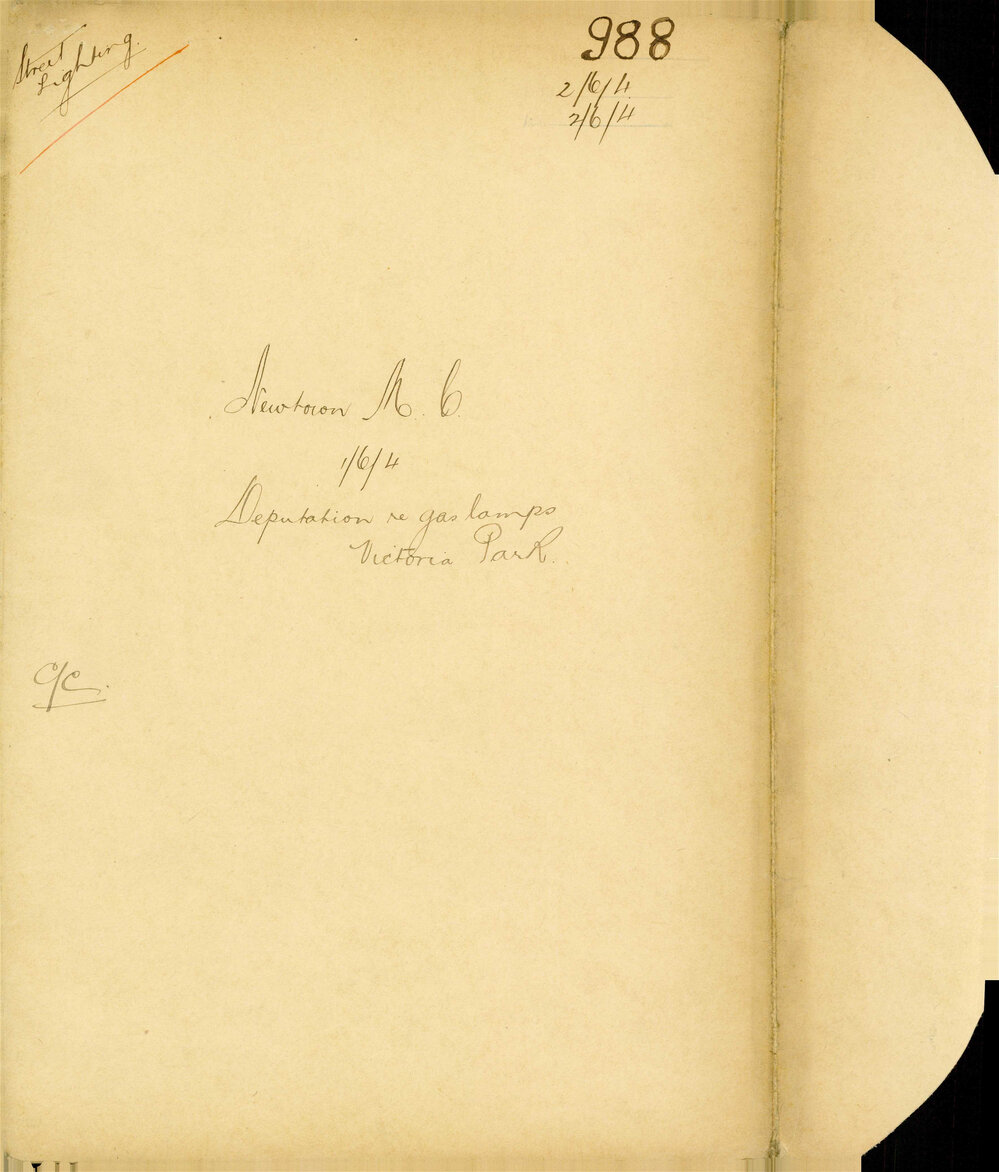 Street
Lighting.
988
2/6/4
2/6/4
Newtown M. C.
1/6/4
Deputation re gas lamps
Victoria Park.
C/C.